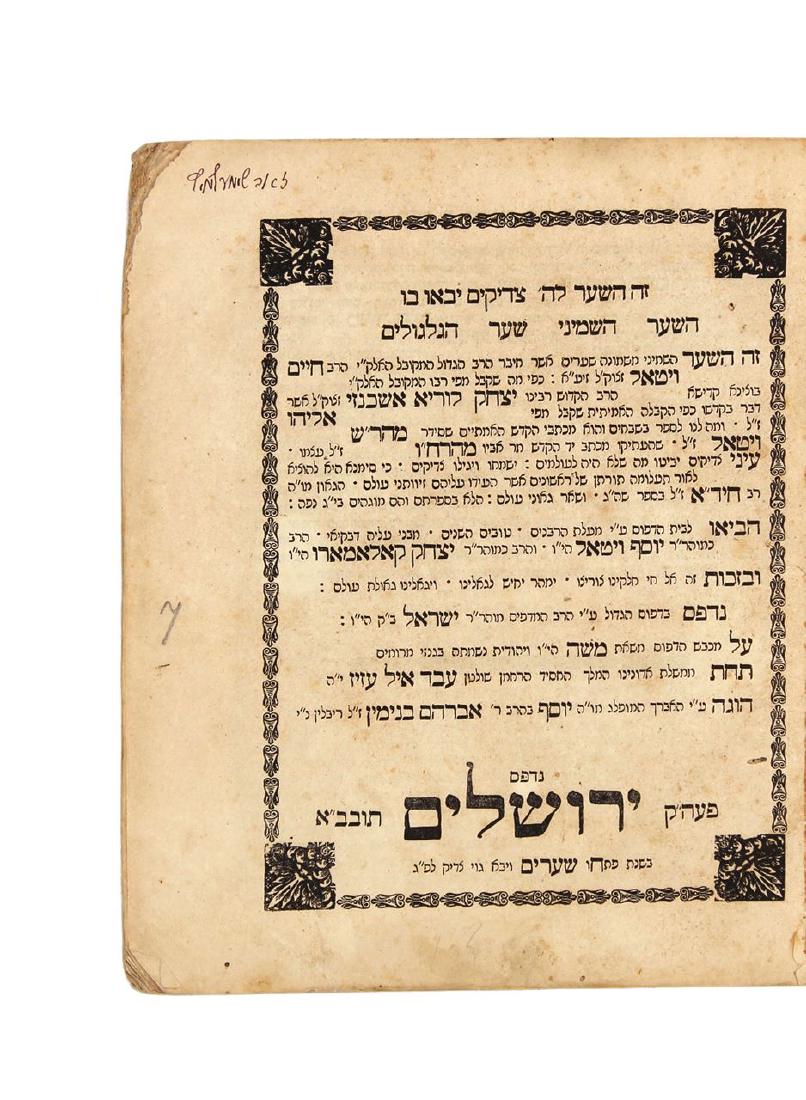 זה השער לה׳ צדיקים יבאו בו
השער השמיני שער הגלגולים
זה השער השמיני משמונה שערים אשר חיבר הרב הגדול המקובל האלק״י הרב חיים
ויטאל זצוק״ל זיע״א : כפי מה שקבל מפי רבו המקובל האלק״י
בוצינא קדישא הרב הקדוש רבינו יצחק לוריא אשכנזי זצוק״ל אשר
דבר בקדשו כפי הקבלה האמיתית שקבל מפי אליהו
ז״ל · ומה לנו לספר בשבחים והוא מכתבי הקדש האמתיים שסידר מהר״ש
ויטאל ז״ל · שהעתיקו מכתב יד הקדש מר אביו מהרח״ו ז״ל עצמו ·
עיני צדיקים יביטו מה שלא היה לעולמים : ישמחו ויגילו צדיקים · כי סימנא היא להוציא
לאור תעלומה תורתן של ראשונים אשר העידו עליהם זיוותני עולם · הגאון מו״ה
רב חיד״א ז״ל בספר שה״ג · ושאר גאוני עולם : הלא בספרתם והם מוגהים בי״ג נפה :
הביאו לבית הדפוס ע״י מעלת הרבנים · טובים השנים · מבני עליה דבקיאי · הרב
כמוהר״ר יוסף ויטאל הי״ו · והרב כמוהר״ר יצחק קאלאמארו הי״ו
ובזכות זה אל חי חלקינו צורינו · ימהר יחיש לגאלינו · ויגאלינו גאולת עולם :
נדפס בדפוס הגדול ע״י הרב המדפיס מוהר״ר ישראל ב״ק הי״ו :
על מכבש הדפוס משאת משה הי״ו ויהודית נשמתה בגנזי מרומים
תחת ממשלת אדונינו המלך החסיד הרחמן שולטן עבד איל עזיז י״ה
הוגה ע״י האברך המופלג מו״ה יוסף בהרב ר׳ אברהם בנימין ז״ל ריבלין נ״י
נדפס
פעה״ק ירושלים תובב״א
בשנת פתחו שערים ויבא גוי צדיק לפ״ג